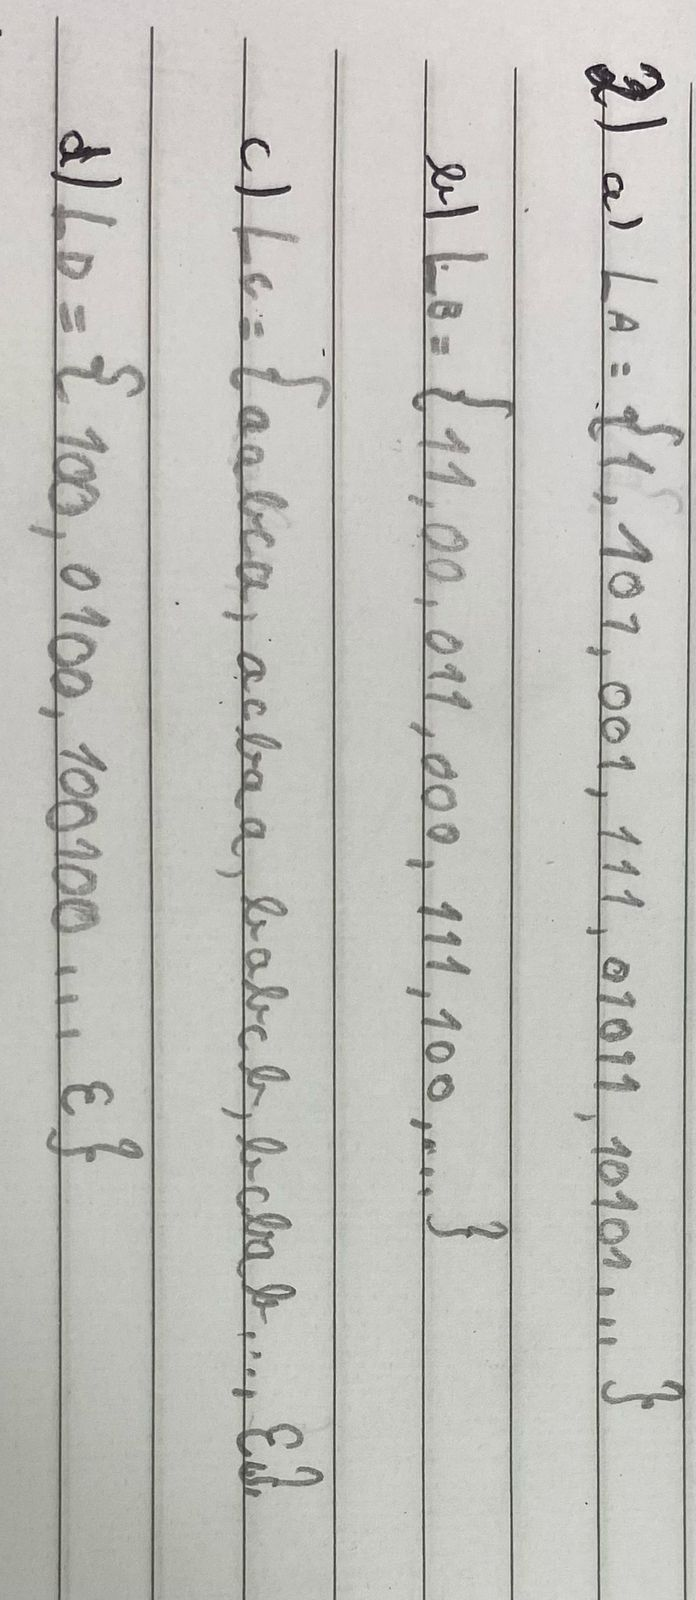 2) a) LA = {1, 101, 001, 111, 01011, 10101, ... }
b) LB = {11, 00, 011, 000, 111, 100, ... }
c) LC = {aabca, acbaa, babcb, bcbab, ..., ε}
d) LD = {100, 0100, 100100 ... , ε}